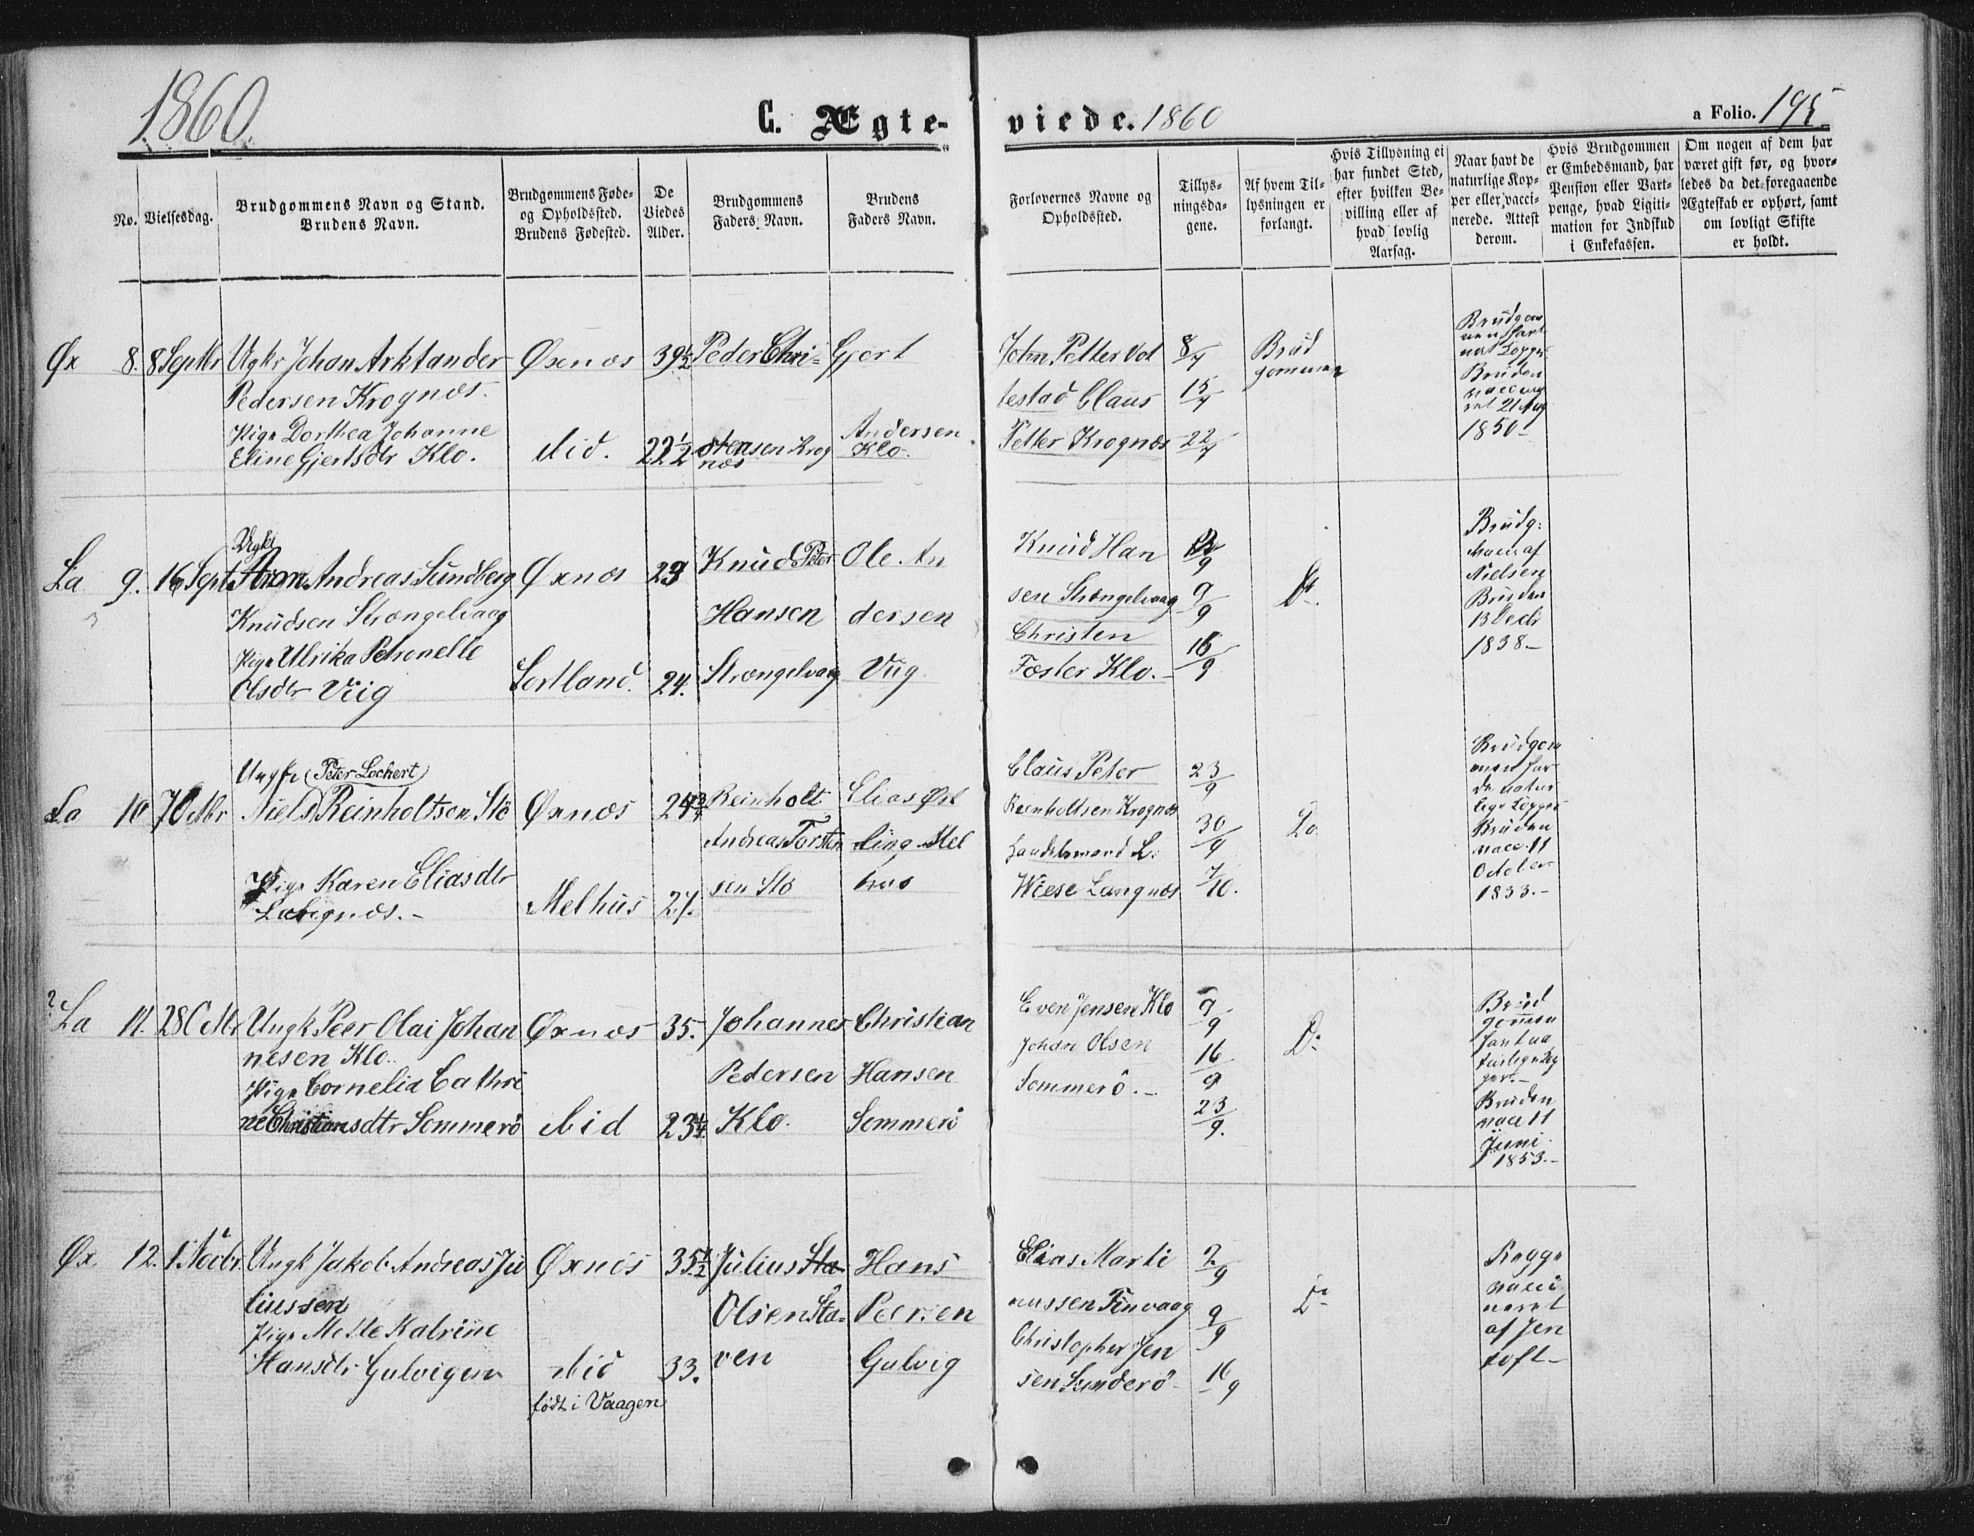 1860.
C. Ægte-
viede. 1860
a Folio. 195
No.
Vielsesdag.
Brudgommens Navn og Stand.
Brudens Navn.
Brudgommens Føde-
og Opholdssted.
Brudens Fødested.
De
Viedes
Alder.
Brudgommens
Faders Navn.
Brudens
Faders Navn.
Forlovernes Navne og
Opholdssted.
Tillys-
ningsda-
gene.
Af hvem Til-
lysningen er
forlangt.
Hvis Tillysning ei
har fundet Sted,
efter hvilken Be-
villing eller af
hvad lovlig
Aarsag.
Naar havt de
naturlige Kop-
per eller vacci-
nerede. Attest
derom.
Hvis Brudgommen
er Embedsmand, har
Pension eller Vart-
penge, hvad Ligiti-
mation for Indskud
i Enkekassen.
Om nogen af dem har
været gift før, og hvor-
ledes da det foregaaende
Ægteskab er ophørt, samt
om lovligt Skifte
er holdt.
Øx 8. 8 Septbr
Ugkr Johan Arktander
Pedersen Krognæs.
Pige Dorthea Johanne
Eline Gjertsdtr Klo.
Øxnæs
ibid.
39½
22½
Peder Chri-
stensen Krog
næs
Gjert
Andersen
Klo.
John Petter Vol
lestad Claus
Petter Krognæs
8/7
15/7
22/7
Brud
gommen
Brudens
1850-
La 9. 16 Sept
Ugkr
Andreas Sundberg
Knudsen Strængelvaag
Pige Ulrika Petronelle
Olsdtr Viig
Øxnæs
Sortland.
29
24.
Knud Peter
Hansen
Strængelvaag
Ole An
dersen
Viig
Knud Han
sen Strængelvaag
Christen
Foster Klo.-
2/9
9/9
16/9
Do.
Brudg:
vacc. af
Nielsen
Bruden
13 Decbr
1838.-
La 10 7 Octbr
Ungk (Peter Lockert)
Niels Reinholtsen Stö
Pige Karen Eliasdtr
Langnæs.-
Øxnæs
Melhus
24¾
27.
Reinholt
Andreas Torsten
sen Stö
Elias Øst
ling Mel
hus
Claus Peter
Reinholtsen Krognæs
Handelsmand L:
Wiese Langnæs
23/9
30/9
7/10.
Do
Brudgom
men har
de natur
lige Kopper
Bruden
vacc. 11
October
1833.-
La 11. 28 Octbr
Ungk Peer Olai Johan
nesen Klo.
Pige Cornelia Cathri
ne Christiansdtr Sommerö
Øxnæs
ibid
35.
23¼
Johannes
Pedersen
Klo.
Christian
Hansen
Sommerö
Even Jensen Klo
Johan Olsen
Sommerö.-
9/9
16/9
23/9.
Do
Brud
gommen
havt na
turlige Kop
per.-
Bruden
vacc 11
Juni
1853.-
Øx. 12. 1 Novbr.
Ungk Jakob Andreas Ju
liussen
Pige Mette Katrine
Hansdtr Gulvigen
Øxnæs
ibid
født i Vaagen
35½
33.
Julius Sta
Olsen Sta-
ven
Hans
Pedersen
Gulvig
Elias Marti
nussen Finvaag
Christopher Jen
sen Sunderö
2/9
9/9
16/9
Do
Begge
vacci
neret
af Jen
toft-